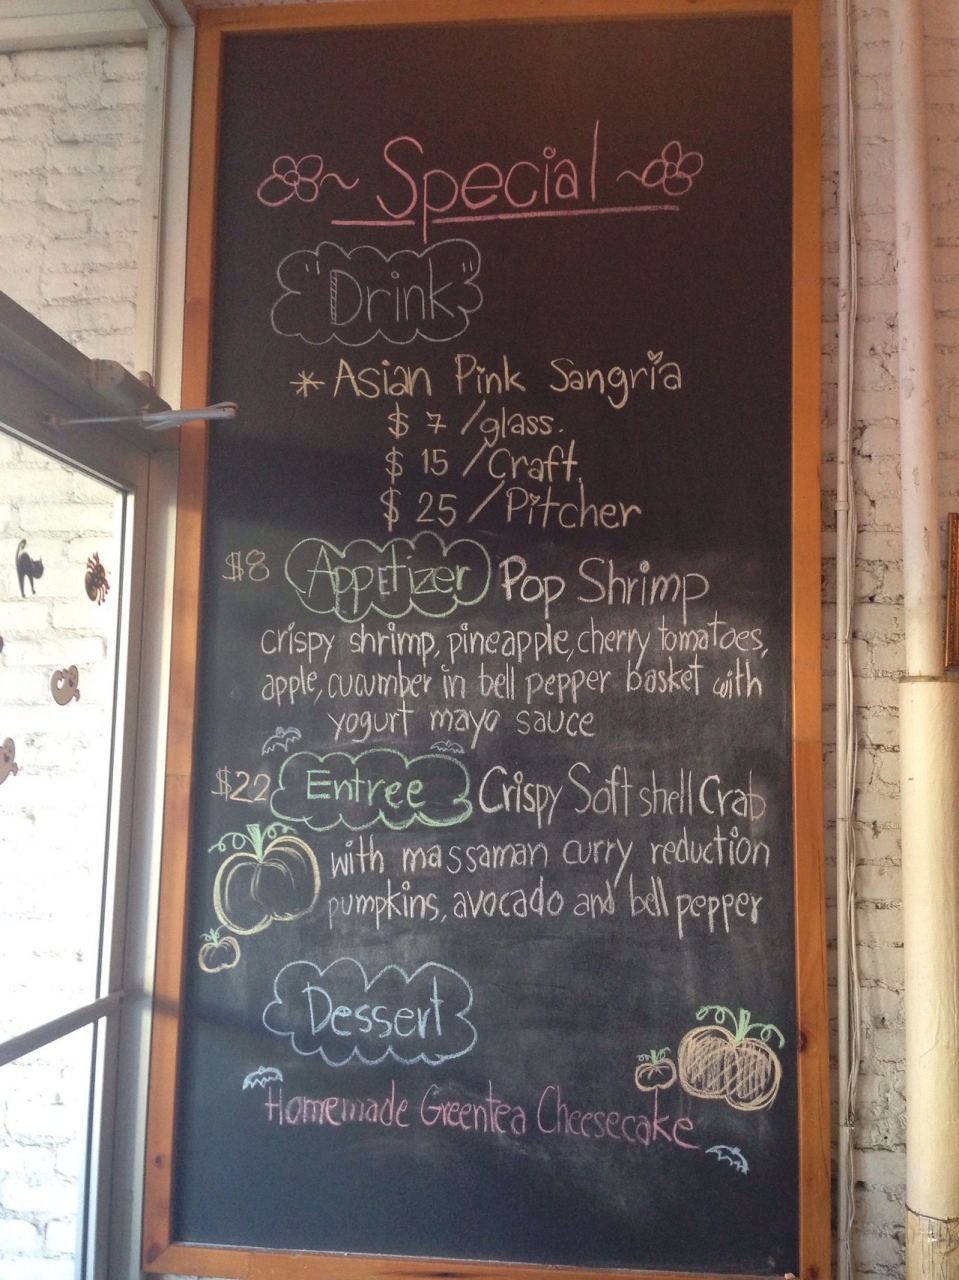 ~ Special ~
"Drink"
* Asian Pink Sangria
$ 7 /glass.
$ 15 /Craft.
$ 25 /Pitcher
$8 Appetizer Pop Shrimp
crispy shrimp, pineapple, cherry tomatoes,
apple, cucumber in bell pepper basket with
yogurt mayo sauce
$22 Entree Crispy Soft shell Crab
with massaman curry reduction
pumpkins, avocado and bell pepper
Dessert
Homemade Greentea Cheesecake